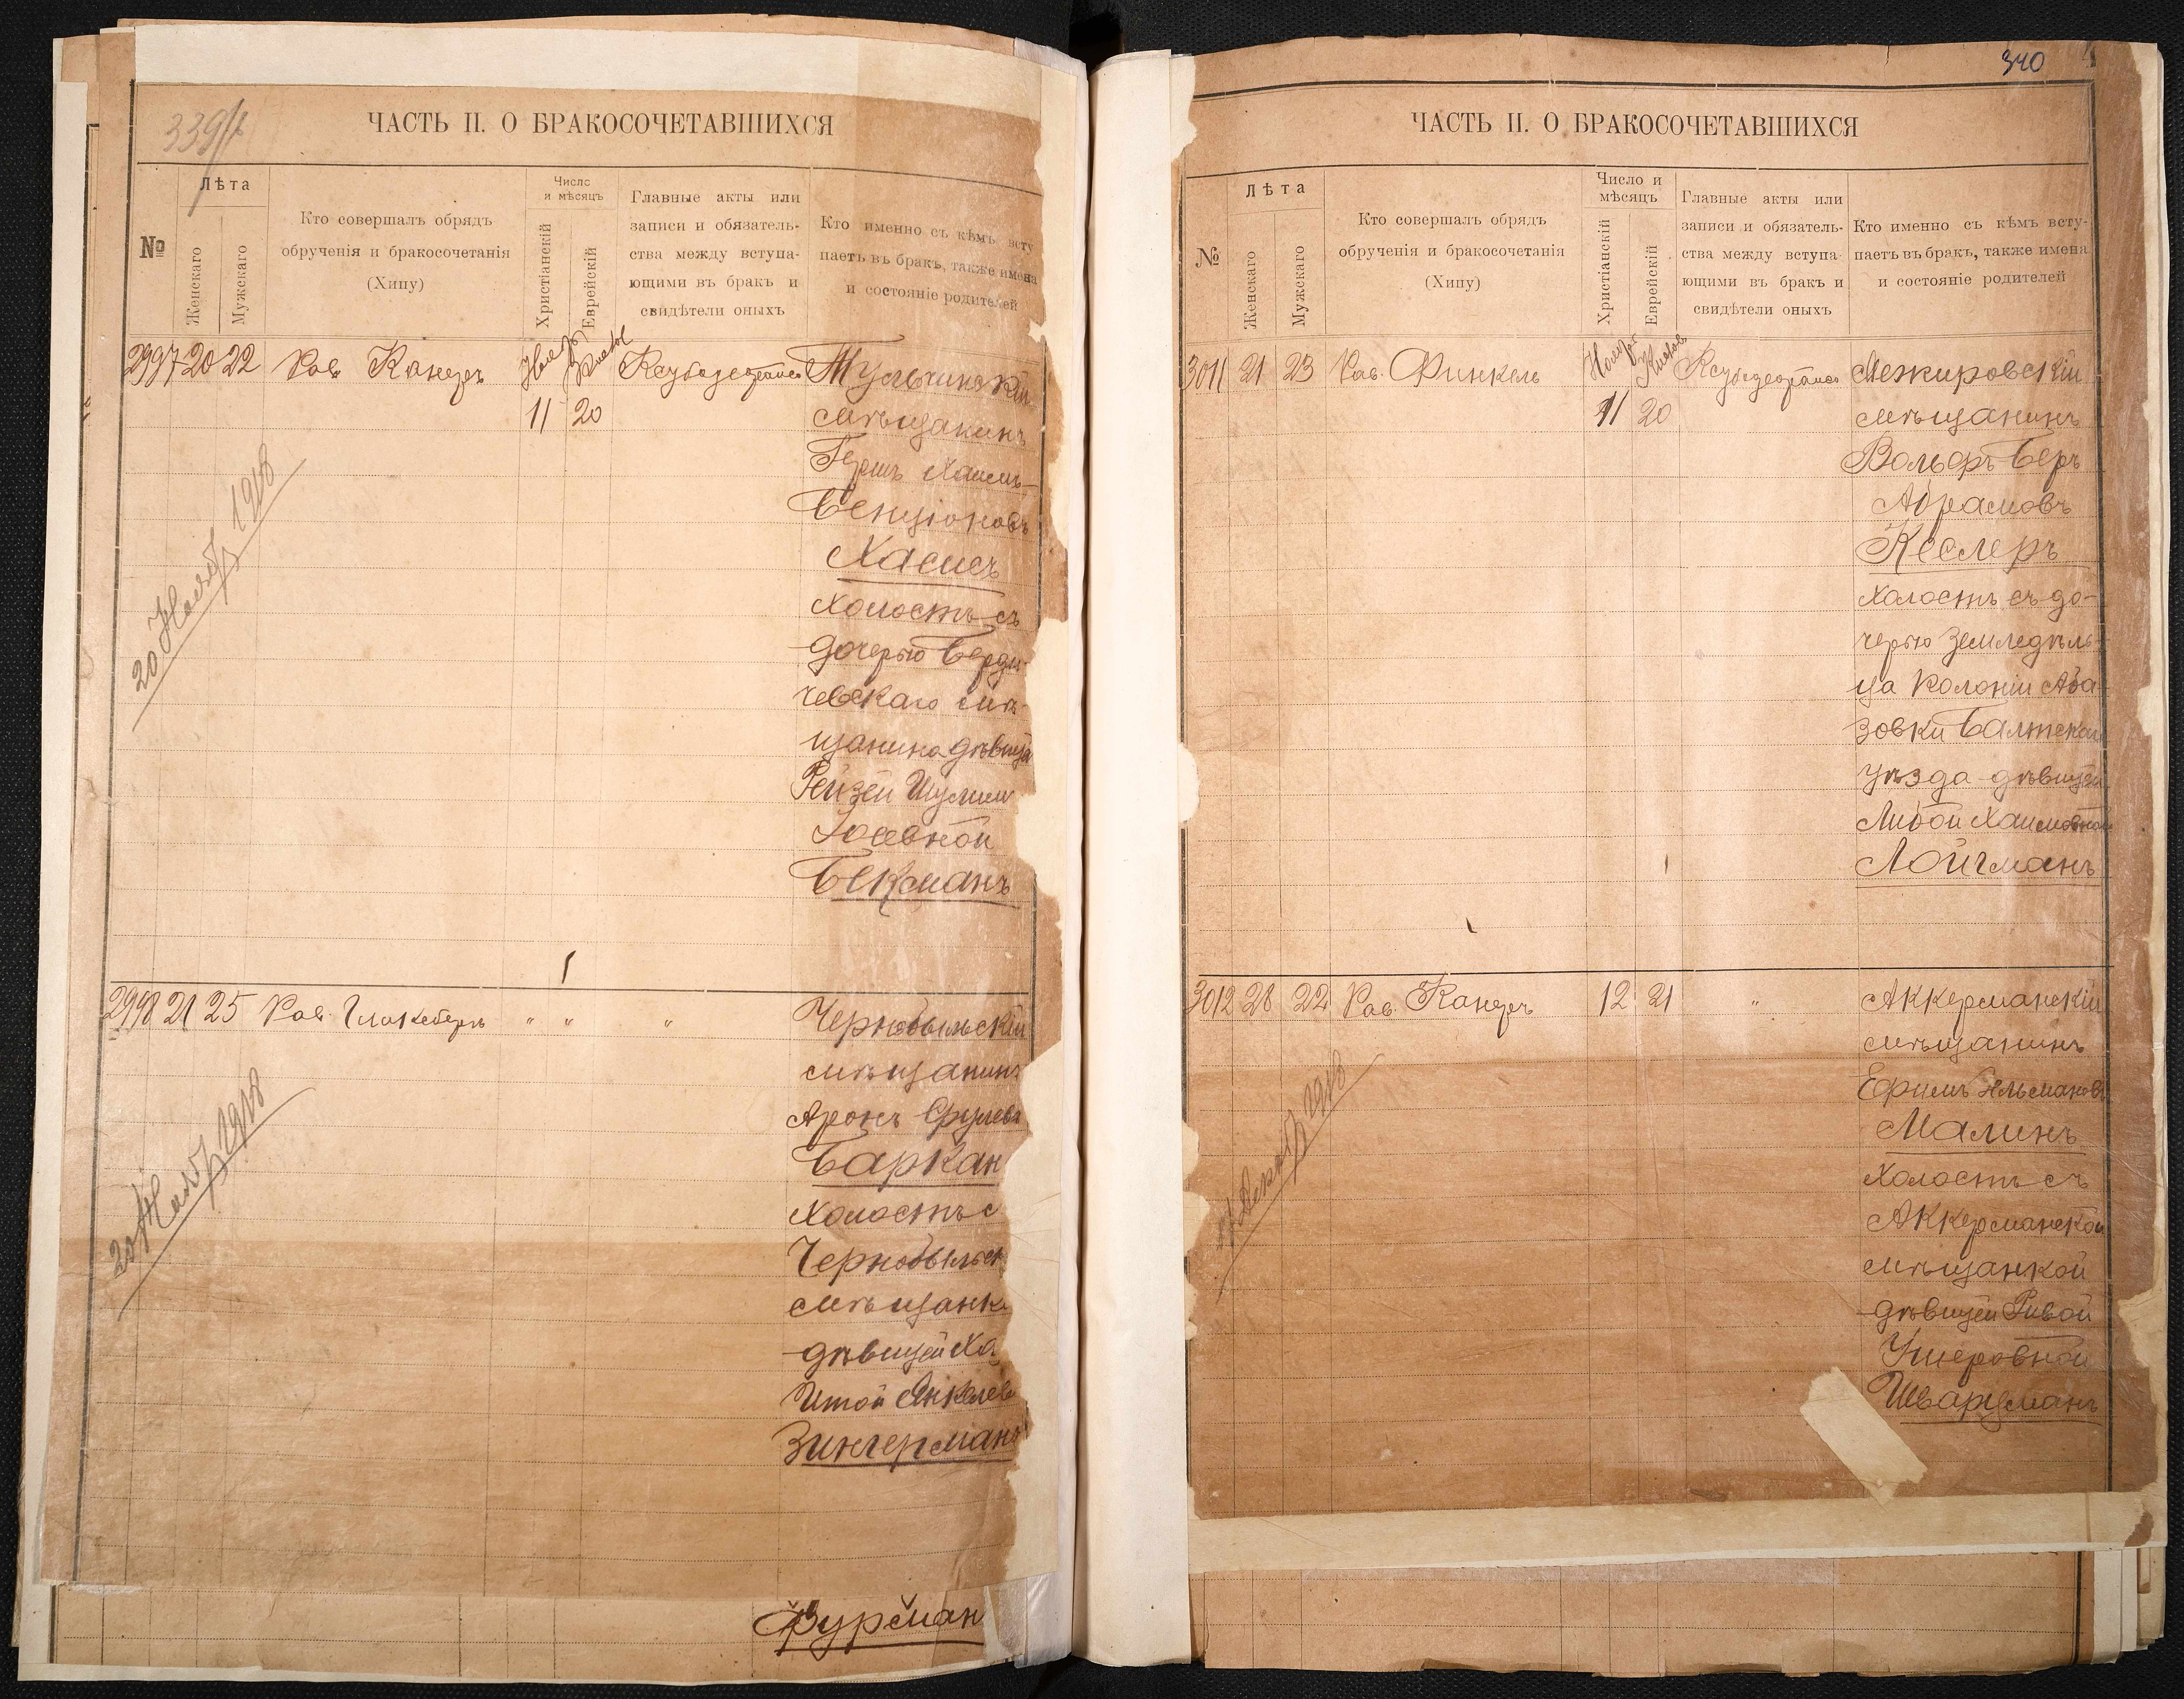 339
ЧАСТЬ II. О БРАКОСОЧЕТАВШИХСЯ
№
Лѣта
Женскаго
Мужскаго
Кто совершалъ обрядъ
обрученія и бракосочетанія
(Хипу)
Число
и мѣсяцъ
Христіанскій
Еврейскій
Главные акты или
записи и обязатель-
ства между вступа-
ющими въ бракъ и
свидѣтели оныхъ
Кто именно съ кѣмъ всту
паетъ въ бракъ, также имена
и состояніе родителей
2997 20 22 Рав. Канеръ 11 20 Тульчинскій
мѣщанинъ
Гершъ Хаимъ-
Бенціоновъ
Хасисъ
холостъ съ
дочерью Берди-
чевскаго мѣ-
щанина дѣвица
Рейзей Шулим
Іосевной
Бекманъ
20 Нояб 1918
2998 21 25 Рав. " " " Чернобыльскій
мѣщанинъ
Аронъ Срулевъ
Баркан
холостъ с
Чернобыльск
мѣщанк
дѣвицей Ха
Итой Янкелев
Зингерманъ
20 Нояб 1918
Фурман
340
ЧАСТЬ II. О БРАКОСОЧЕТАВШИХСЯ
№
Лѣта
Женскаго
Мужскаго
Кто совершалъ обрядъ
обрученія и бракосочетанія
(Хипу)
Число и
мѣсяцъ
Христіанскій
Еврейскій
Главные акты или
записи и обязатель-
ства между вступа-
ющими въ бракъ и
свидѣтели оныхъ
Кто именно съ кѣмъ всту-
паетъ въ бракъ, также имена
и состояніе родителей
3011 21 23 Рав. Финкель 11 20 Межировскій
мѣщанинъ
Вольфъ Беръ
Абрамовъ
Кеслеръ
холостъ съ до-
черью земледѣль-
ца колоніи Аба-
зовки Балтскаго
уѣзда дѣвицей
Либой Хаимовной
Лойгманъ
3012 28 22 Рав. Канеръ 12 21 " Аккерманскій
мѣщанинъ
Ефимъ Эльмановъ
Малинъ
холостъ съ
Аккерманской
мѣщанкой
дѣвицей Ривой
Ушеровной
Шварцманъ